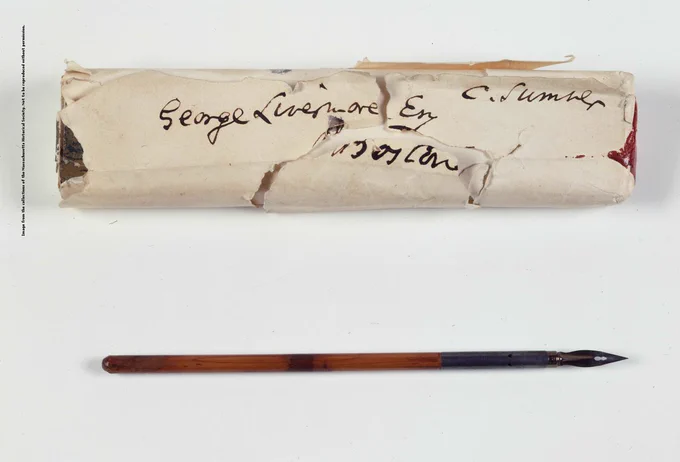 George Livermore Esq
C. Sumner
Boston
Image from the collections of the Massachusetts Historical Society, not to be reproduced without permission.